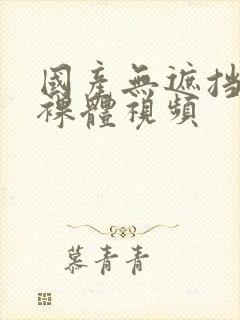 國產無遮挡
裸體視頻
慕青青